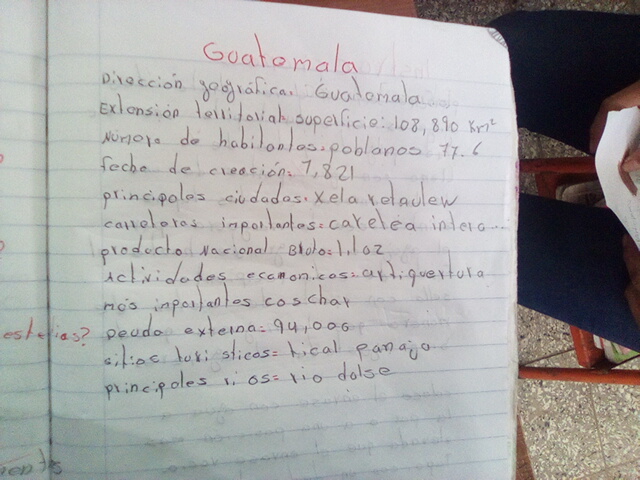 Guatemala
Dirección geográfica. Guatemala
Extensión territorial superficie: 108,890 Km²
Número de habitantes: poblanos 77.6
feche de creación: 1,821
principales ciudades: Xela relaulew
carreteras inportantes: caretea intera...
producto Nacional Bruto: 1,102
Actividades economicos: artiquertura
más inportantes coschar
deuda externa: 94,006
sitios turi sticos: tical panaja
principales rios: rio dolse
estelias?
entes